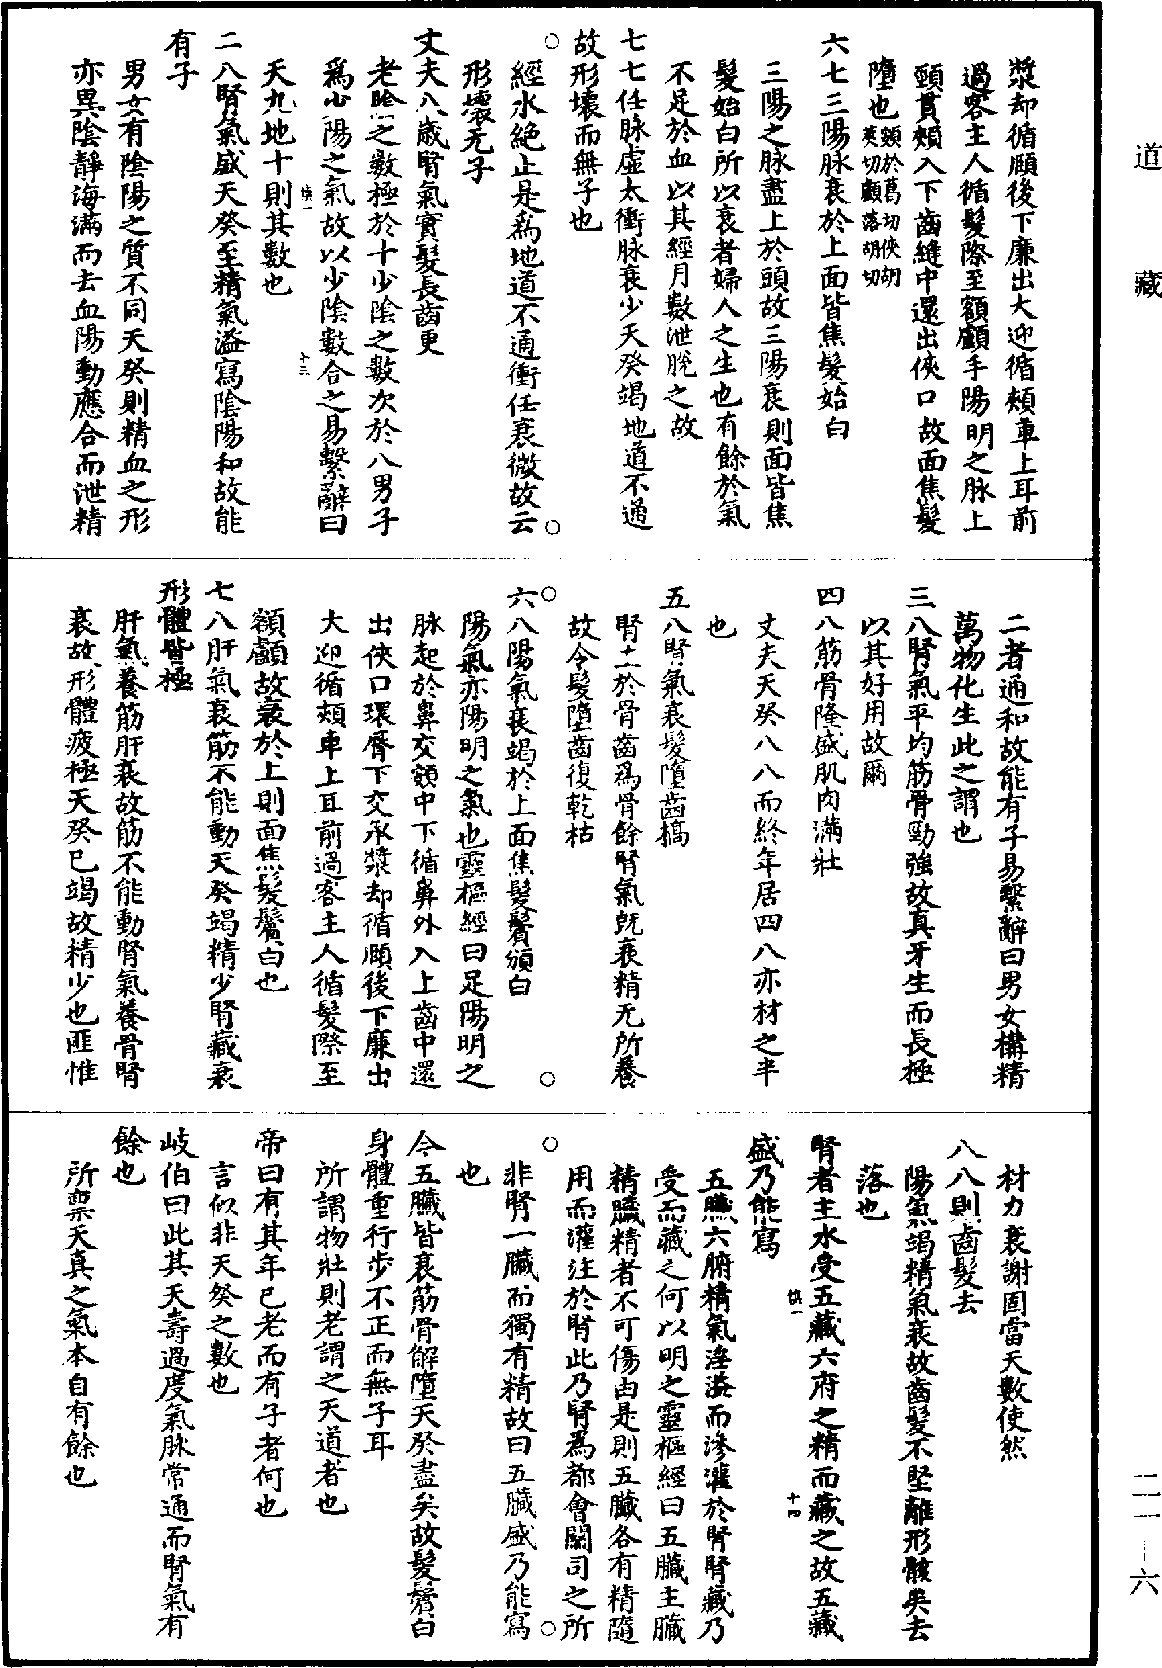 道藏
漿却循頤後下廉出大迎循頰車上耳前
過客主人循髮際至額顱手陽明之脉上
頸貫頰入下齒縫中還出俠口故面焦髮
墮也頞於葛切俠胡
莢切顱落胡切
六七三陽脉衰於上面皆焦髮始白
三陽之脉盡上於頭故三陽衰則面皆焦
髮始白所以衰者婦人之生也有餘於氣
不足於血以其經月數泄脫之故
七七任脉虛太衝脉衰少天癸竭地道不通
故形壞而無子也
經水絶止是爲地道不通衝任衰微故云
形壞无子
丈夫八歲腎氣實髮長齒更
老陰之數極於十少陰之數次於八男子
爲少陽之氣故以少陰數合之易繫辭曰
天九地十則其數也
慎一
十三
二八腎氣盛天癸至精氣溢寫陰陽和故能
有子
男女有陰陽之質不同天癸則精血之形
亦異陰靜海滿而去血陽動應合而泄精
二者通和故能有子易繫辭曰男女構精
萬物化生此之謂也
三八腎氣平均筋骨勁強故真牙生而長極
以其好用故爾
四八筋骨隆盛肌肉滿壯
丈夫天癸八八而終年居四八亦材之半
也
五八腎氣衰髮墮齒槁
腎主於骨齒爲骨餘腎氣既衰精无所養
故令髮墮齒復乾枯
六八陽氣衰竭於上面焦髮鬢頒白
陽氣亦陽明之氣也靈樞經曰足陽明之
脉起於鼻交頞中下循鼻外入上齒中還
出俠口環脣下交承漿却循頤後下廉出
大迎循頰車上耳前過客主人循髮際至
額顱故衰於上則面焦髮鬢白也
七八肝氣衰筋不能動天癸竭精少腎藏衰
形體皆極
肝氣養筋肝衰故筋不能動腎氣養骨腎
衰故形體疲極天癸已竭故精少也匪惟
材力衰謝固當天數使然
八八則齒髮去
陽氣竭精氣衰故齒髮不堅離形骸矣去
落也
腎者主水受五藏六府之精而藏之故五藏
慎一
十四
盛乃能寫
五臟六腑精氣淫溢而滲灌於腎腎藏乃
受而藏之何以明之靈樞經曰五臟主臟
精臟精者不可傷由是則五臟各有精隨
用而灌注於腎此乃腎爲都會關司之所
非腎一臟而獨有精故曰五臟盛乃能寫
也
今五臟皆衰筋骨解墮天癸盡矣故髮鬢白
身體重行步不正而無子耳
所謂物壯則老謂之天道者也
帝曰有其年已老而有子者何也
言似非天癸之數也
岐伯曰此其天壽過度氣脉常通而腎氣有
餘也
所稟天真之氣本自有餘也
二一-六